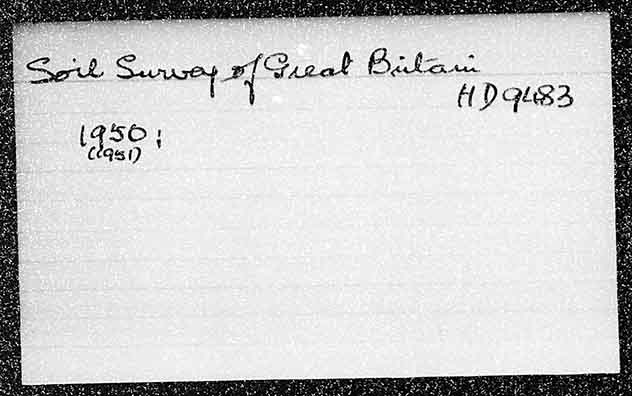 Soil Survey of Great Britain
HD9483
1950;
(1951)